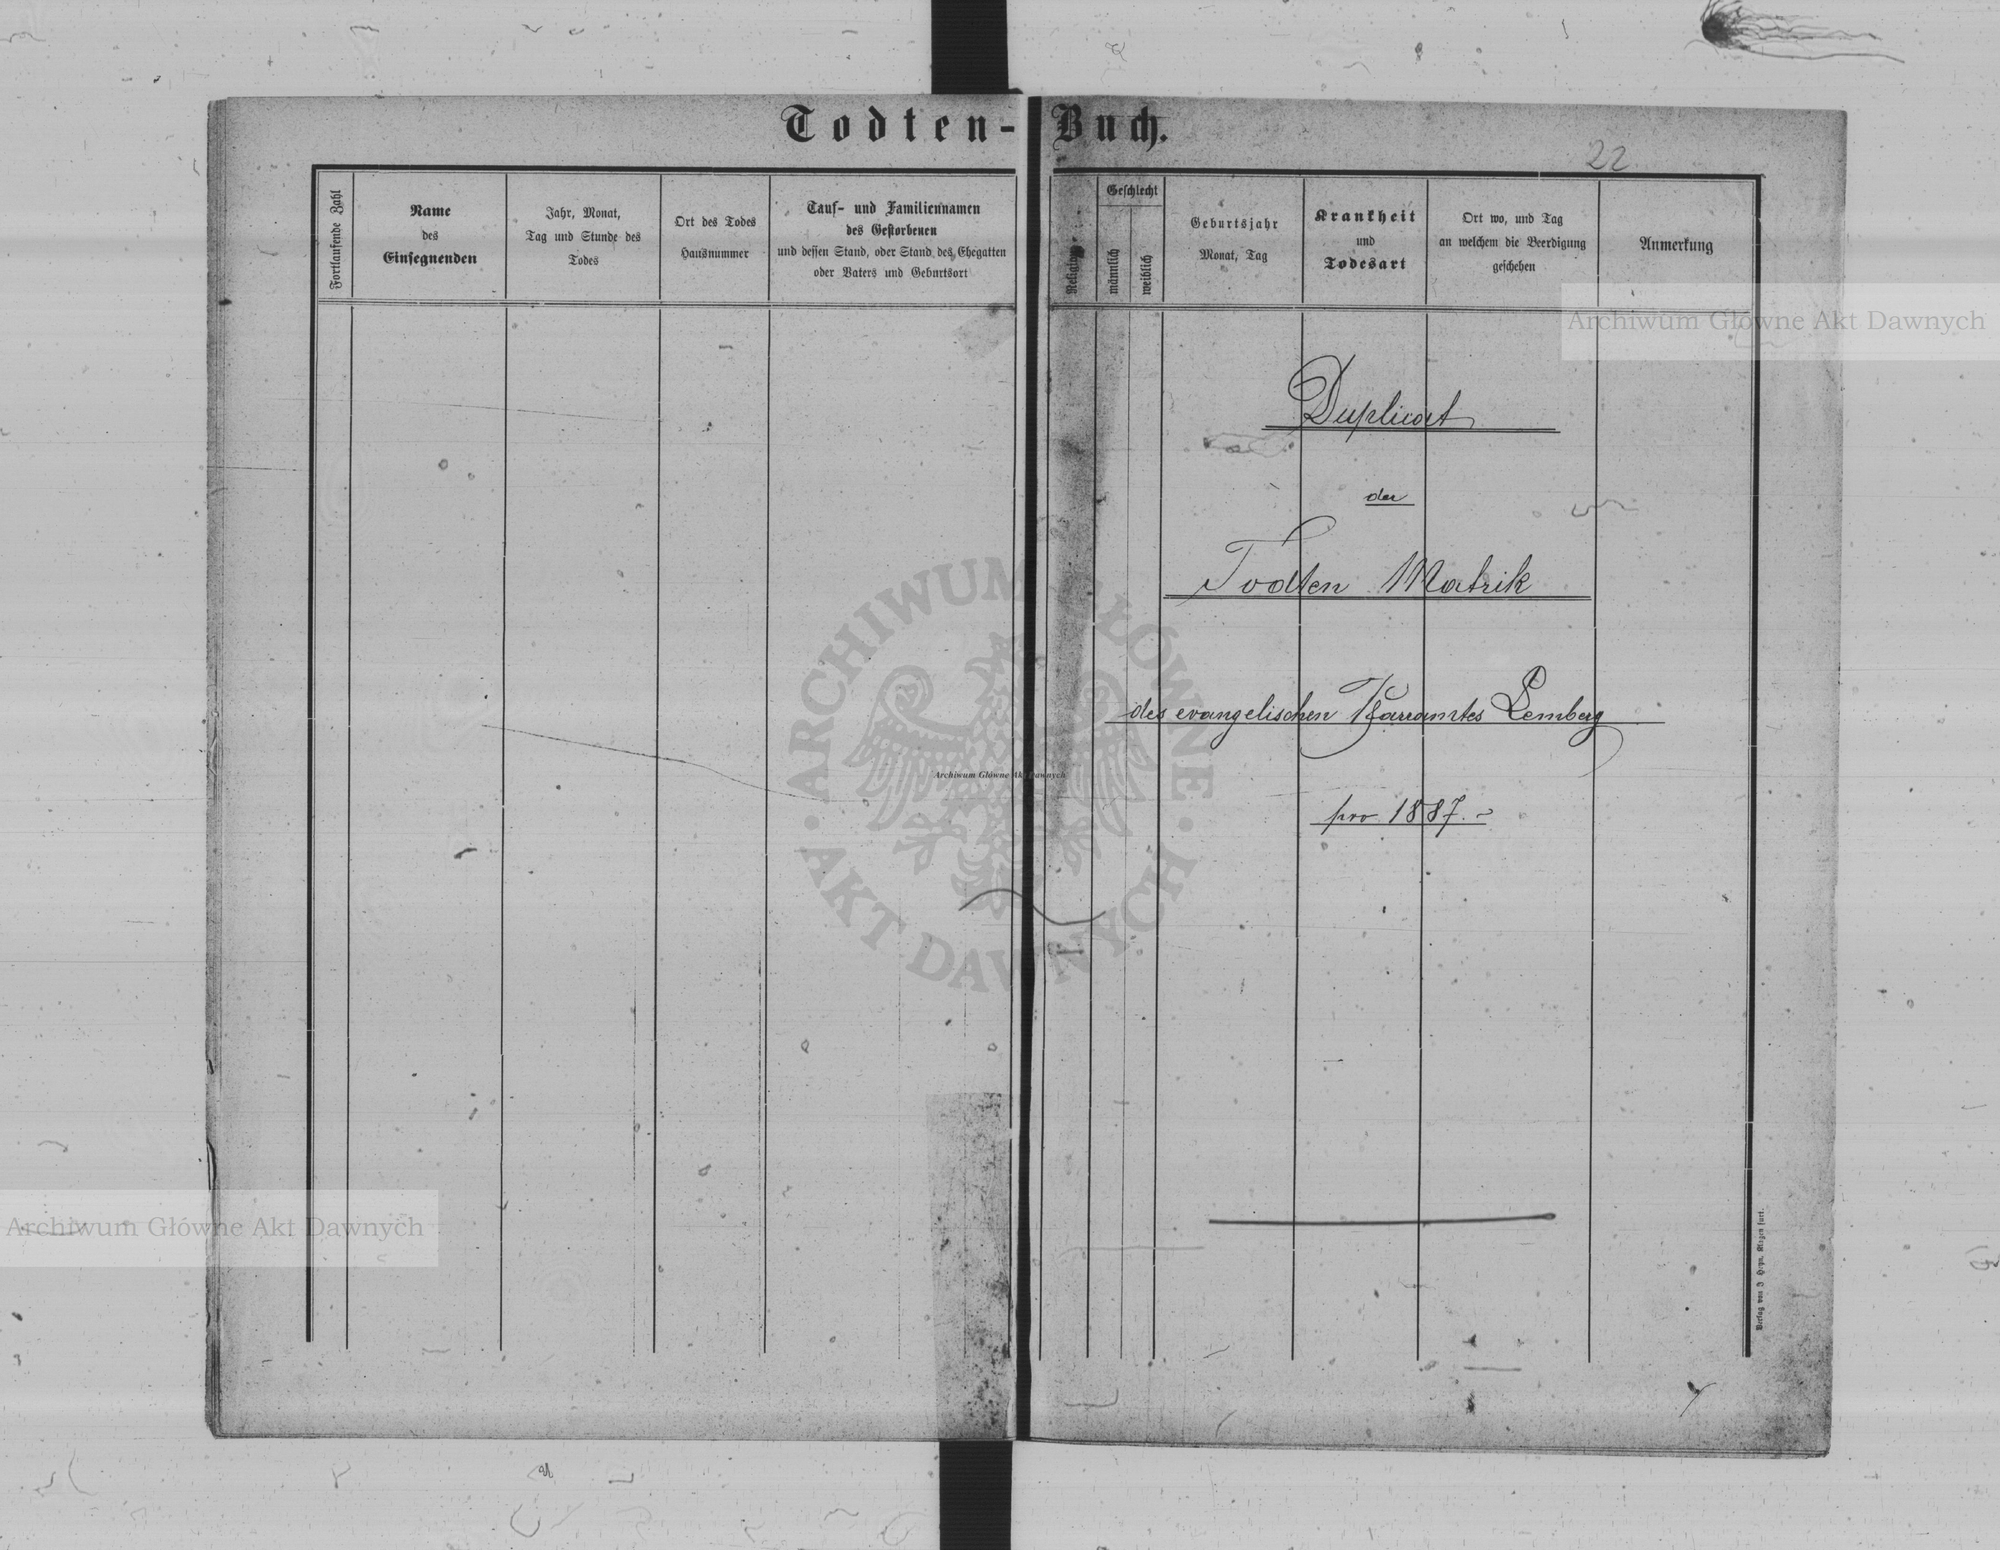 Todten-Buch.
22
Fortlaufende Zahl
Name
des
Einsegnenden
Jahr, Monat,
Tag und Stunde des
Todes
Ort des Todes
Hausnummer
Tauf- und Familiennamen
des Gestorbenen
und dessen Stand, oder Stand des Ehegatten
oder Vaters und Geburtsort
Religion
Geschlecht
männlich
weiblich
Geburtsjahr
Monat, Tag
Krankheit
und
Todesart
Ort wo, und Tag
an welchem die Beerdigung
geschehen
Anmerkung
Archiwum Główne Akt Dawnych
Duplicat
der
Todten Matrik
des evangelischen Pfarramtes Lemberg
pro 1887.
ARCHIWUM GŁÓWNE
AKT DAWNYCH
Archiwum Główne Akt Dawnych
Archiwum Główne Akt Dawnych
Verlag von J Heyn, Klagenfurt.